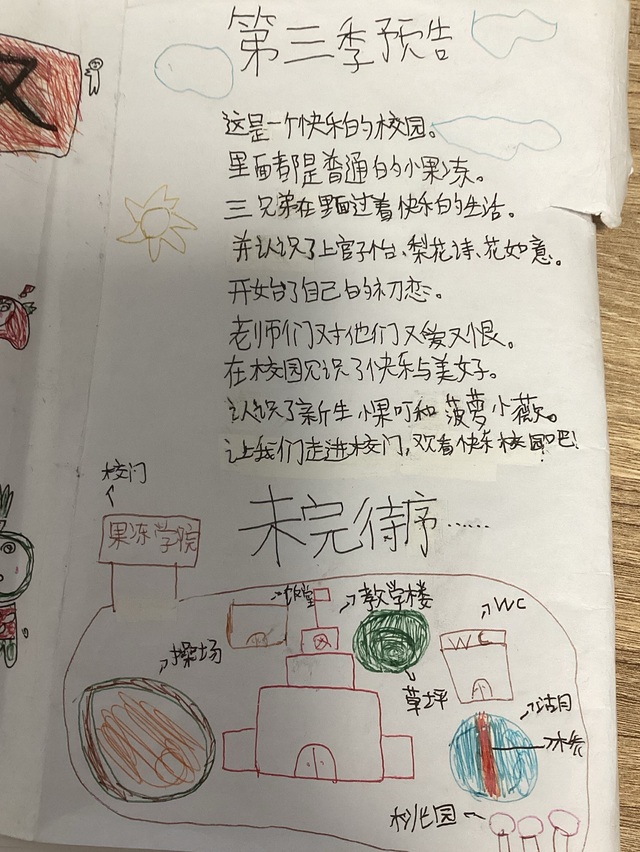 第三季预告
这是一个快乐的校园。
里面都是普通的小果冻。
三兄弟在里面过着快乐的生活。
并认识了上官子怡、梨花诗、花如意。
开始了自己的初恋。
老师们对他们又爱又恨。
在校园见识了快乐与美好。
认识了新生小果叮和菠萝小薇。
让我们走进校门,观看快乐校园吧!
未完待序……
校门
果冻学院
饭堂
教学楼
WC
WC
操场
草坪
桥
桃园